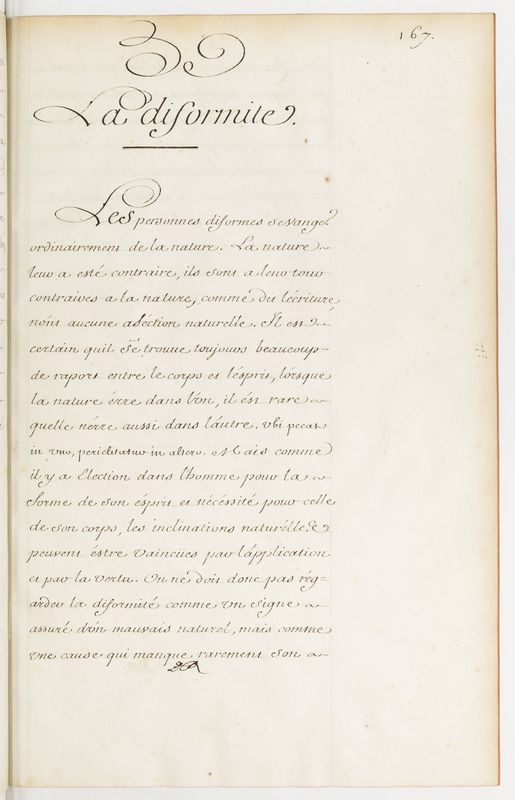 167.
La diformite.
Les personnes diformes se vange.t
ordinairement de la nature. La nature
leur a esté contraire, ils sont a leur tour
contraires a la nature, comme dit lécriture,
nónt aucune aféction naturelle. Il est
certain quil se trouue toujours beaucoup
de raport entre le corps et lésprit, lórsque
la nature érre dans lún, il ést rare
quelle nérre aussi dans láutre. vbi pecat
in vno, periclitatur in altero. Mais comme
il y a Election dans lhomme pour la
forme de son ésprit et nécéssité pour celle
de son corps, les inclinations naturélles
peuvent éstre vaincües par lápplication
et par la vertu. On ne doit donc pas rég=
arder la diformité comme vn signe
assuré dún mauvais naturel, mais comme
vne cause qui manque rarement son